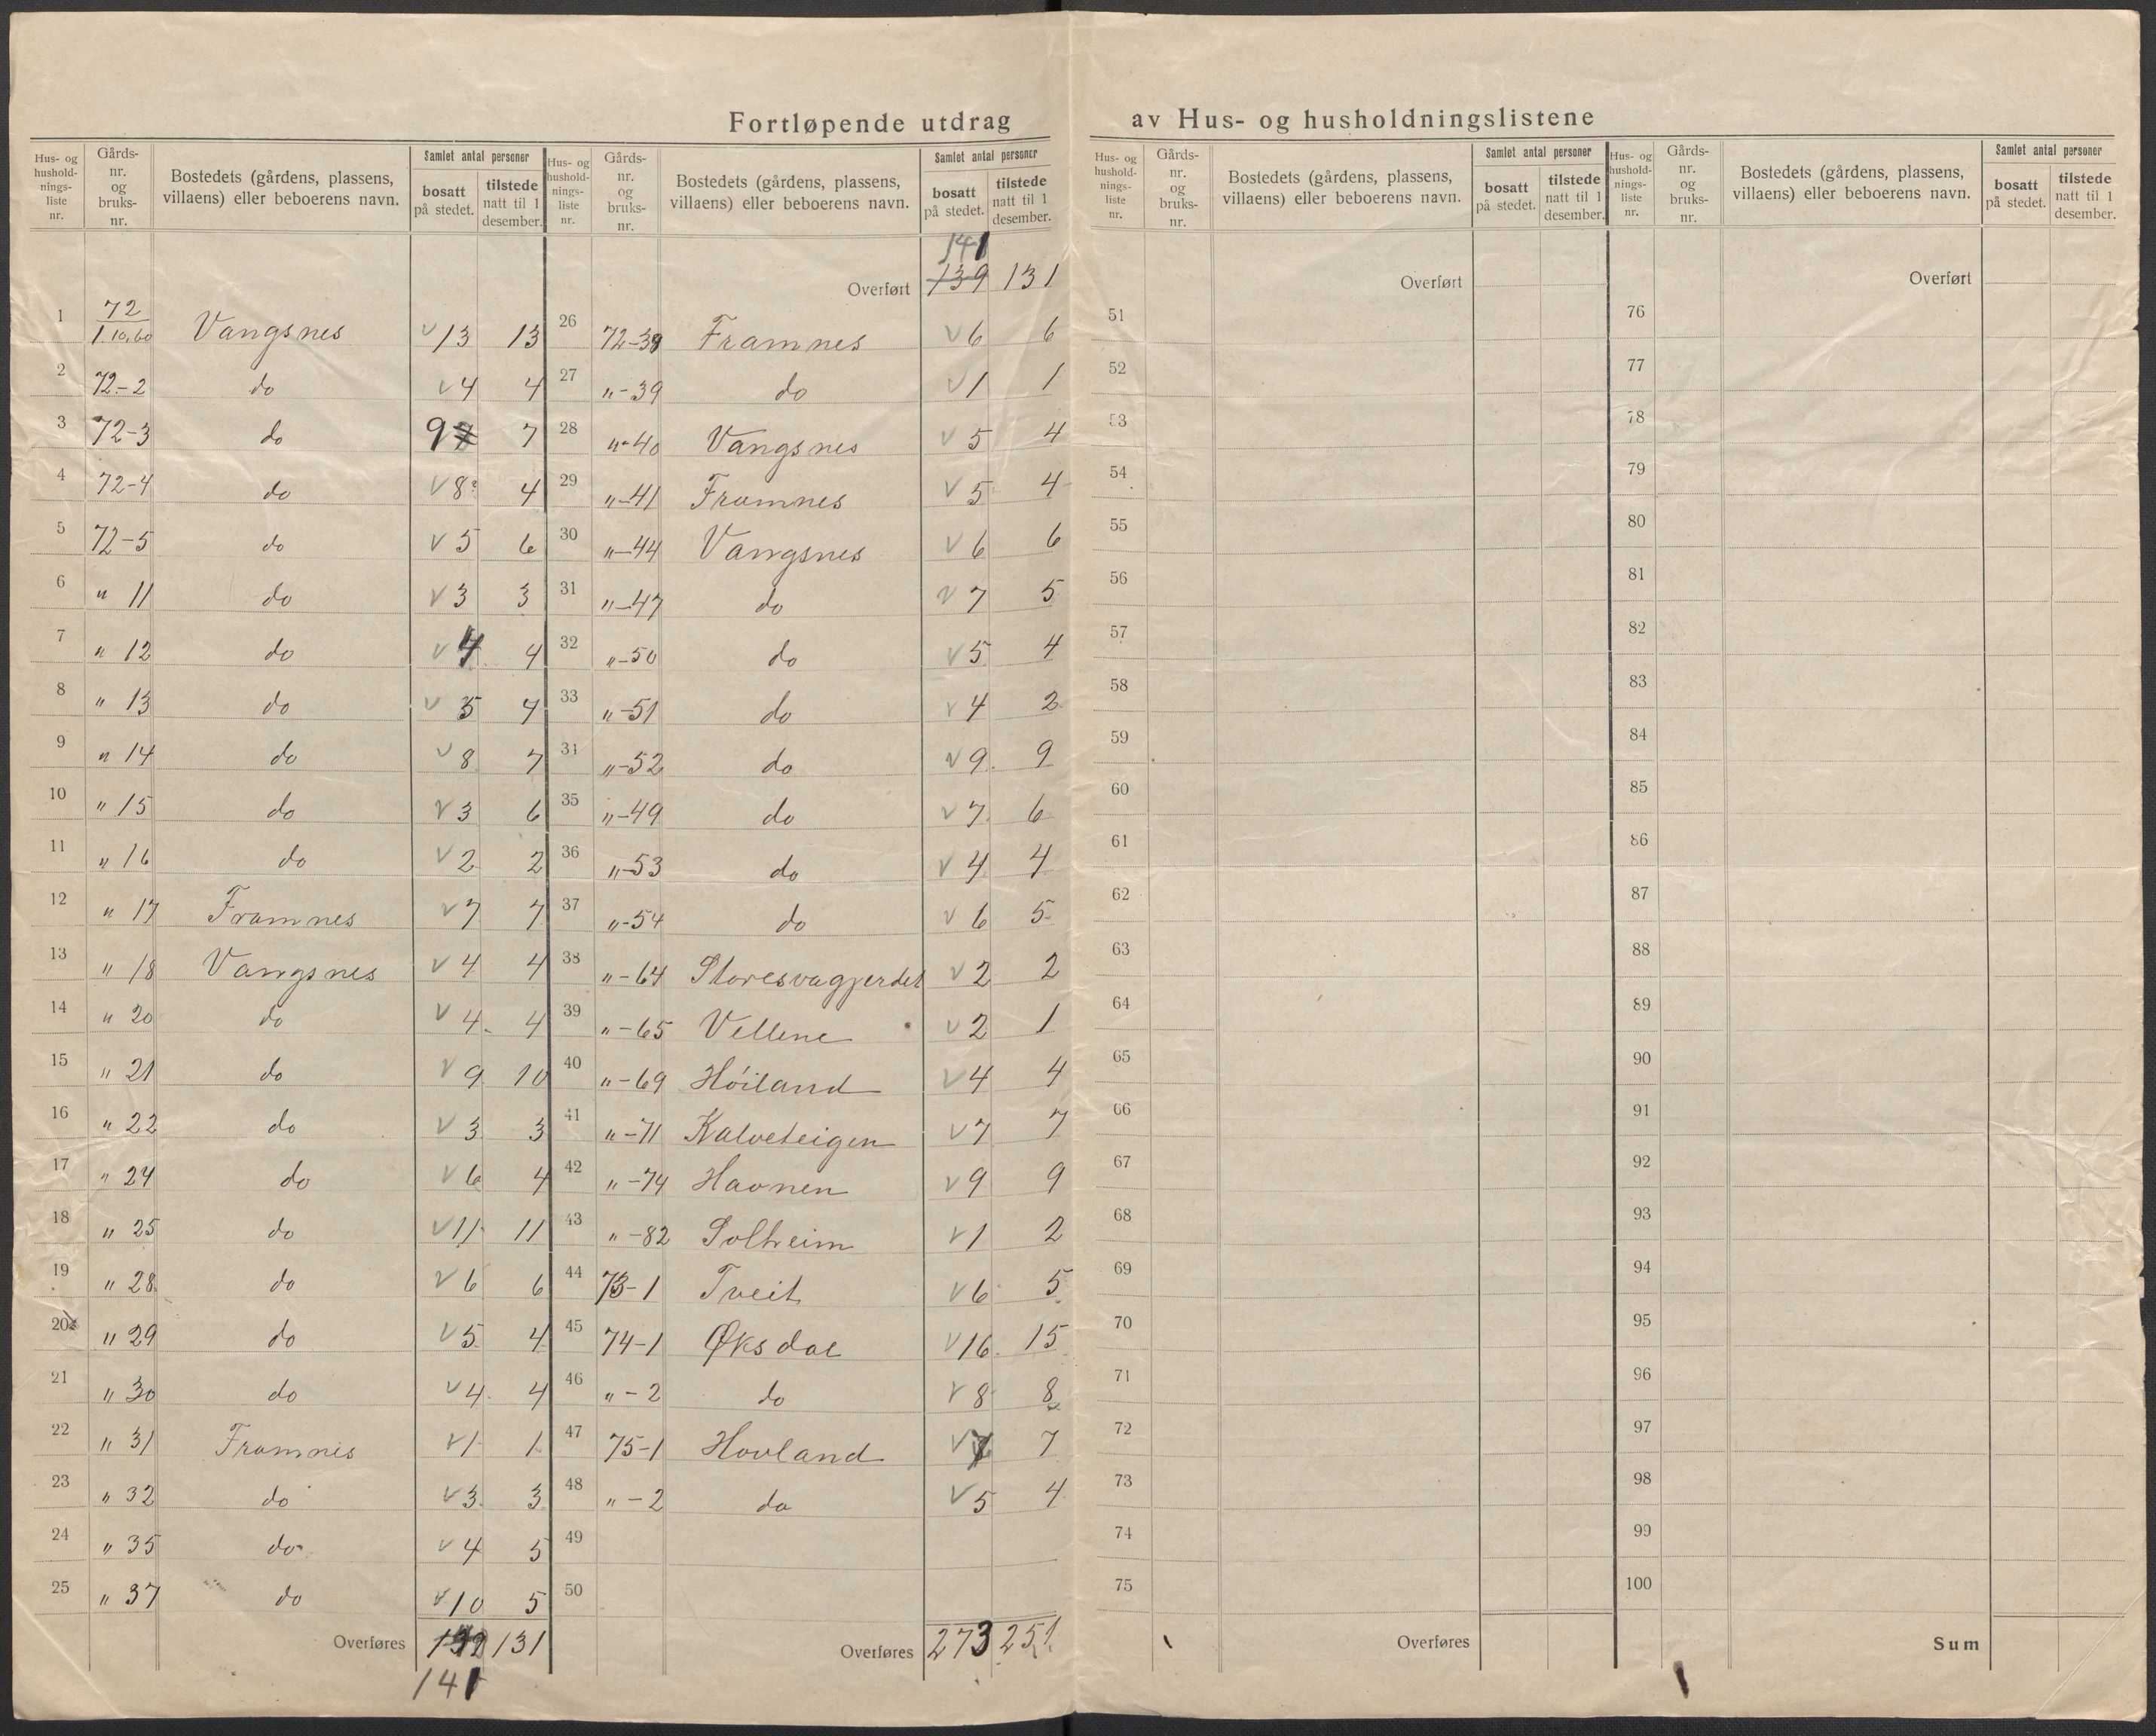 Fortløpende utdrag av Hus- og husholdningslistene
Hus- og hushold-nings-liste nr. Gårds-nr. og bruks-nr. Bostedets (gårdens, plassens, villaens) eller beboerens navn. Samlet antal personer bosatt på stedet. tilstede natt til 1 desember.
1 72/1.10.60 Vangsnes v 13 13
2 72-2 do v 4 4
3 72-3 do 9 7 7
4 72-4 do v 8 4
5 72-5 do v 5 6
6 " 11 do v 3 3
7 " 12 do v 4 4
8 " 13 do v 5 4
9 " 14 do v 8 7
10 " 15 do v 3 6
11 " 16 do v 2 2
12 " 17 Framnes v 7 7
13 " 18 Vangsnes v 4 4
14 " 20 do v 4 4
15 " 21 do v 9 10
16 " 22 do v 3 3
17 " 24 do v 6 4
18 " 25 do v 11 11
19 " 28 do v 6 6
20 " 29 do v 5 4
21 " 30 do v 4 4
22 " 31 Framnes v 1 1
23 " 32 do v 3 3
24 " 35 do v 4 5
25 " 37 do v 10 5
Overføres 139 131
141
Hus- og hushold-nings-liste nr. Gårds-nr. og bruks-nr. Bostedets (gårdens, plassens, villaens) eller beboerens navn. Samlet antal personer bosatt på stedet. tilstede natt til 1 desember.
141
Overført 139 131
26 72-38 Framnes v 6 6
27 "-39 do v 1 1
28 "-40 Vangsnes v 5 4
29 "-41 Framnes v 5 4
30 "-44 Vangsnes v 6 6
31 "-47 do v 7 5
32 "-50 do v 5 4
33 "-51 do v 4 2
34 "-52 do v 9 9
35 "-49 do v 7 6
36 "-53 do v 4 4
37 "-54 do v 6 5
38 "-64 Storesvagjerdet v 2 2
39 "-65 Vellene v 2 1
40 "-69 Höiland v 4 4
41 "-71 Kalveteigen v 7 7
42 "-74 Havnen v 9 9
43 "-82 Solheim v 1 2
44 73-1 Tveit v 6 5
45 74-1 Øksdal v 16 15
46 "-2 do v 8 8
47 75-1 Hovland v 7 7
48 "-2 do v 5 4
49
50
Overføres 273 251
Hus- og hushold-nings-liste nr. Gårds-nr. og bruks-nr. Bostedets (gårdens, plassens, villaens) eller beboerens navn. Samlet antal personer bosatt på stedet. tilstede natt til 1 desember.
Overført
51
52
53
54
55
56
57
58
59
60
61
62
63
64
65
66
67
68
69
70
71
72
73
74
75
Overføres
Hus- og hushold-nings-liste nr. Gårds-nr. og bruks-nr. Bostedets (gårdens, plassens, villaens) eller beboerens navn. Samlet antal personer bosatt på stedet. tilstede natt til 1 desember.
Overført
76
77
78
79
80
81
82
83
84
85
86
87
88
89
90
91
92
93
94
95
96
97
98
99
100
Sum